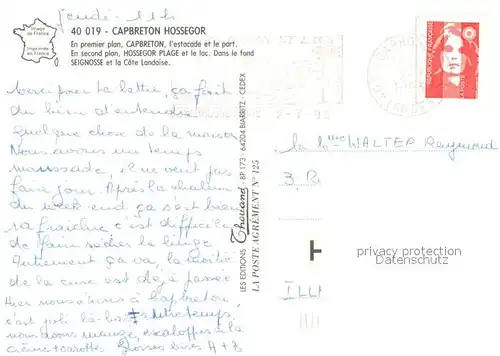 Jeudi. 11h
Image
de France
Imprimée
en France
40 019 - CAPBRETON HOSSEGOR
En premier plan, CAPBRETON, l'estacade et le port.
En second plan, HOSSEGOR PLAGE et le lac. Dans le fond
SEIGNOSSE et la Côte Landaise.
Merci pour ta lettre, ça fait
du bien d'entendre
quelque chose de la maison
Nous avons un temps
maussade, il ne veut pas
faire jour. Après la chaleur
du week-end ça s'est bien
rafraîchie c'est difficile
de faire sécher le linge
Autrement ça va, la moitié
de la cure est déjà passée
Hier nous étions à Capbreton,
c'est joli là-bas
nous avons mangé, escaloppes à la
crème + carottes Grosses bises A + Z
LES EDITIONS Thouand - BP 173 - 64204 BIARRITZ CEDEX
LA POSTE AGRÉMENT N° 125
REPUBLIQUE FRANÇAISE
LA POSTE
WALTER Raymond
3. R
privacy protection
watermark
ILL